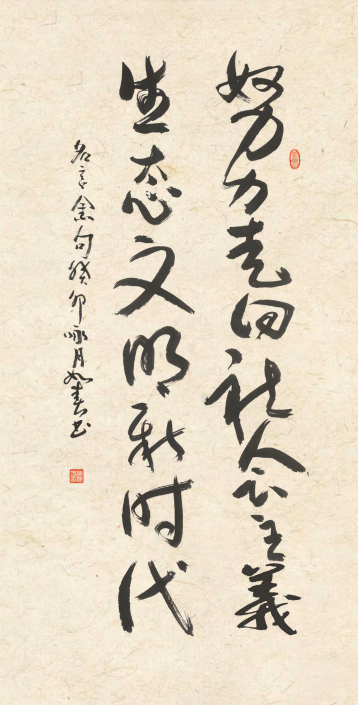 努力走向社会主义
生态文明新时代
名言金句癸卯咏月如春书